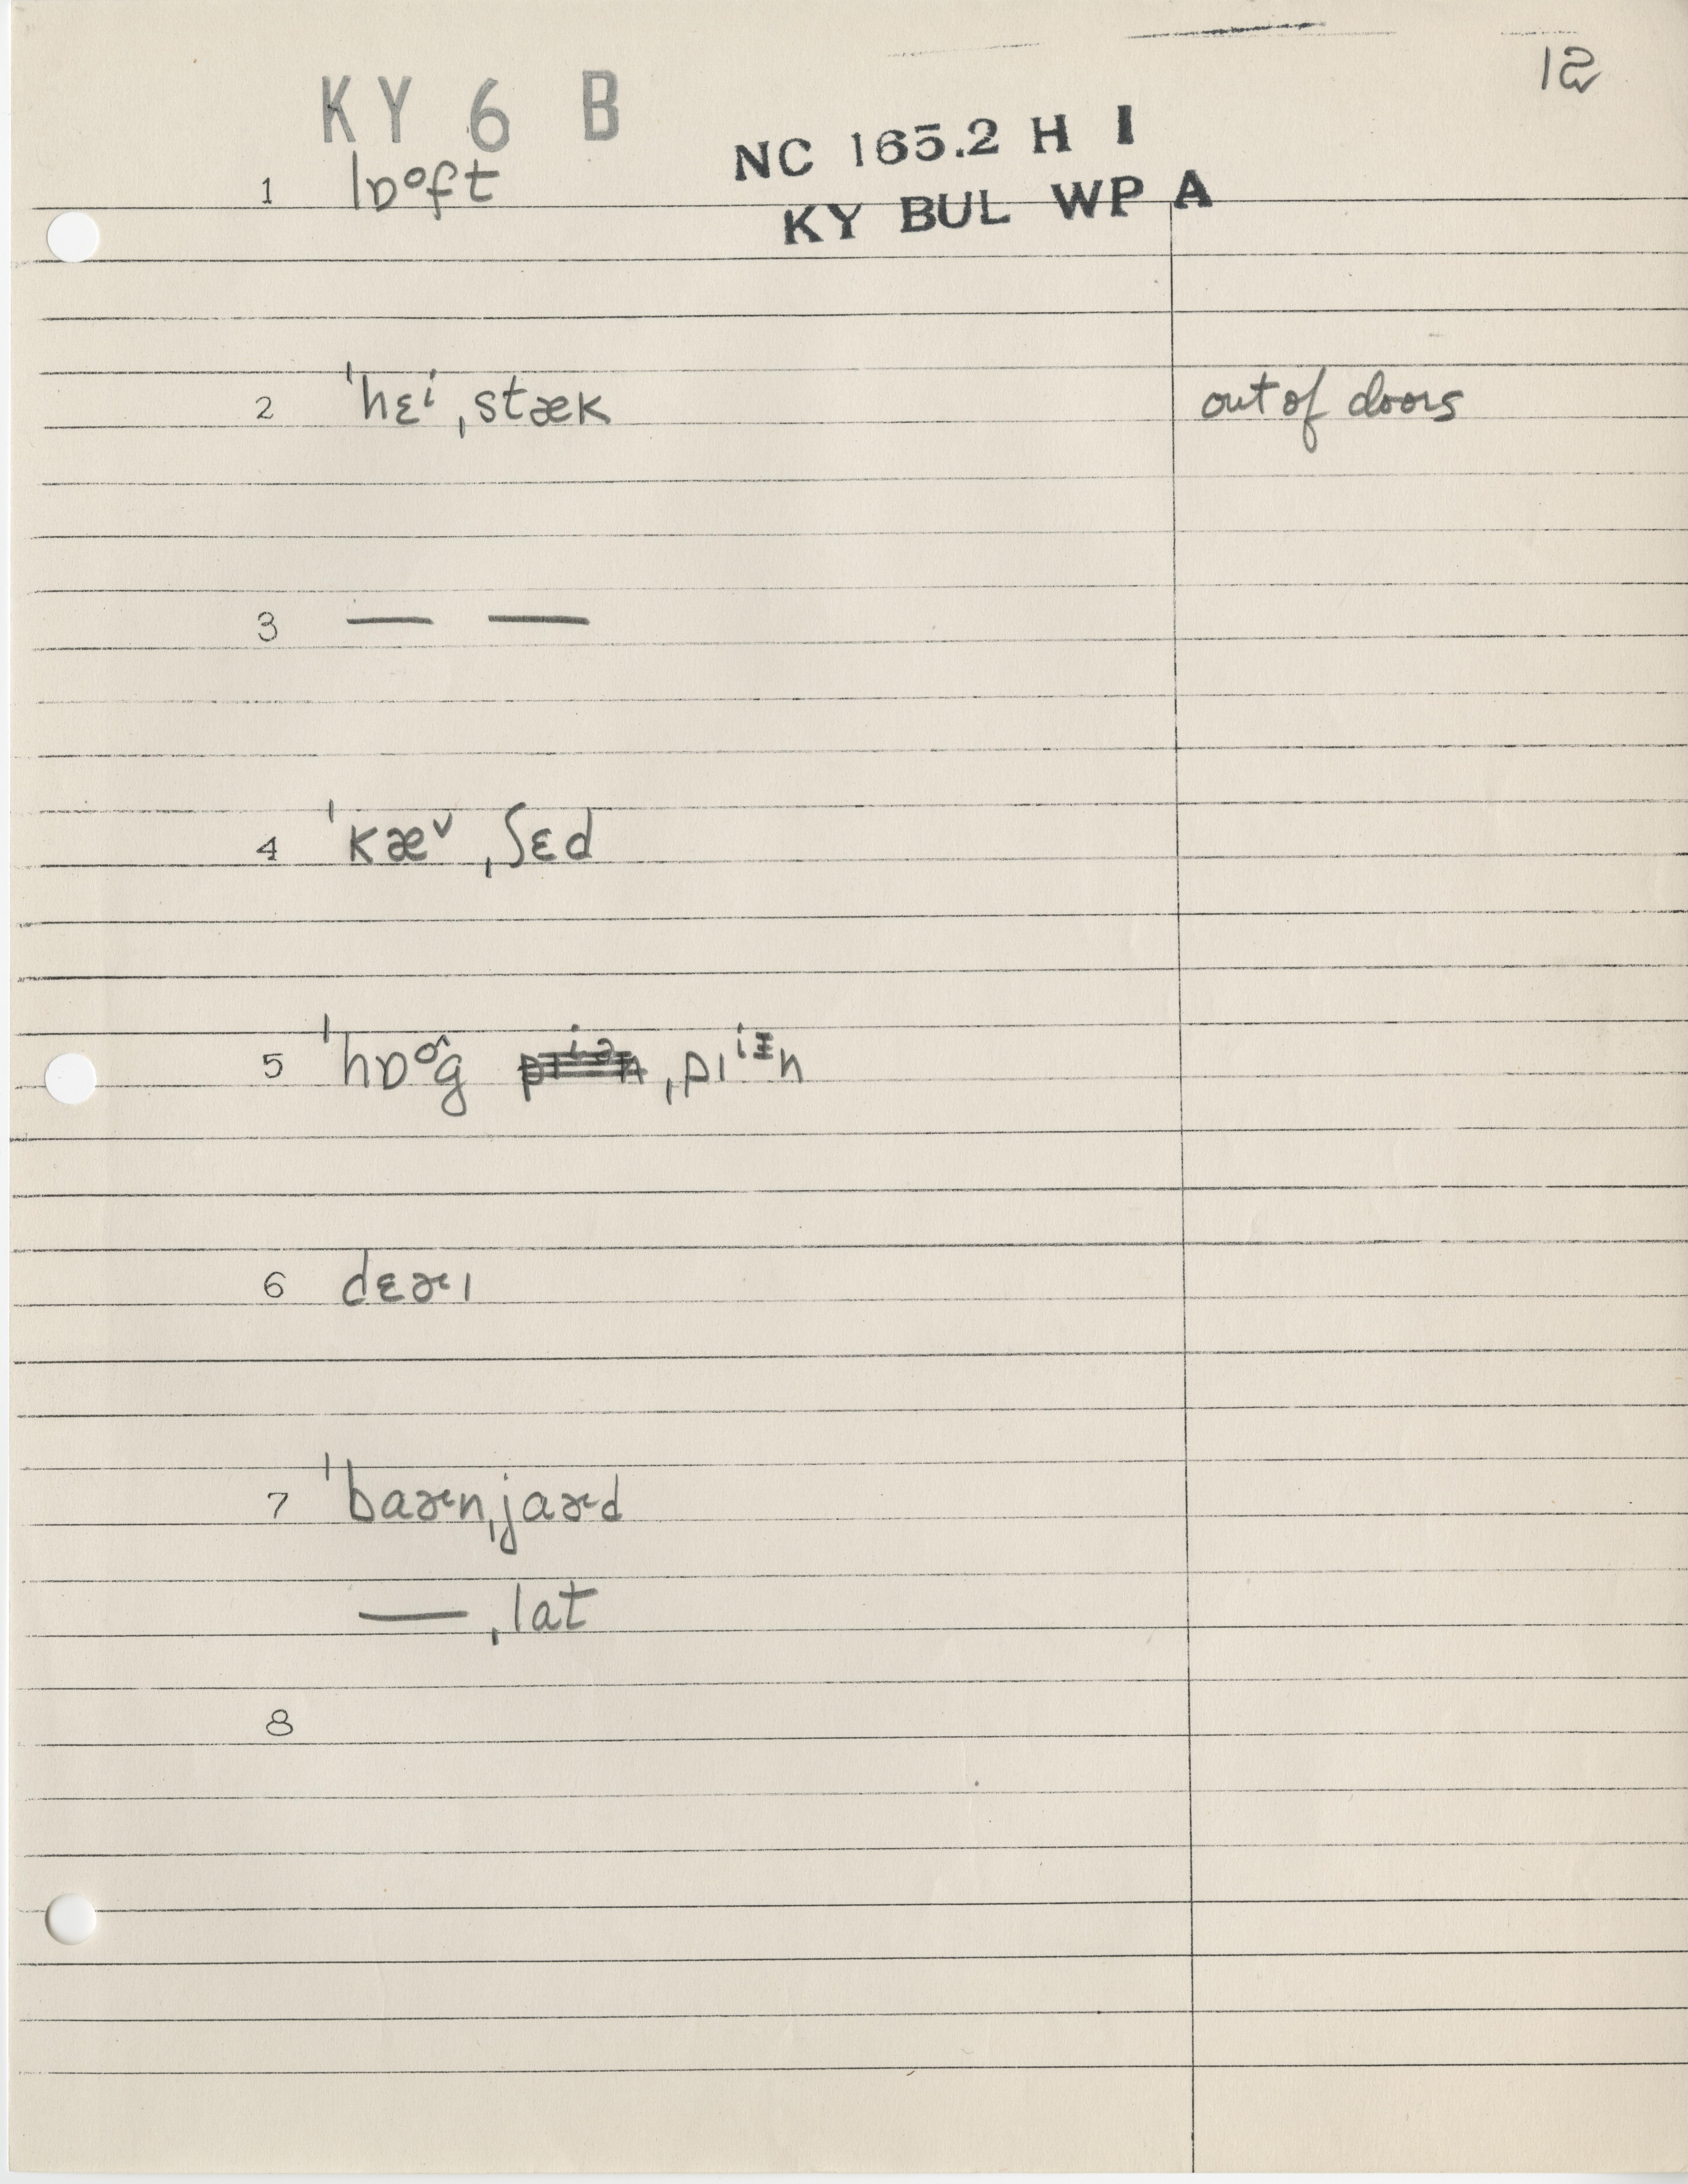 12
KY 6 B
NC 165.2 H I
KY BUL WP A
1 lɒᵒft
2 ˈhɛⁱˌstæk out of doors
3 — —
4 ˈkæᵛ ˌʃɛd
5 ˈhɒᵒ̂g ˌpɪⁱᵻn
6 dɛɚɪ
7 ˈbaɚnˌjaɚd
— ˌlat
8